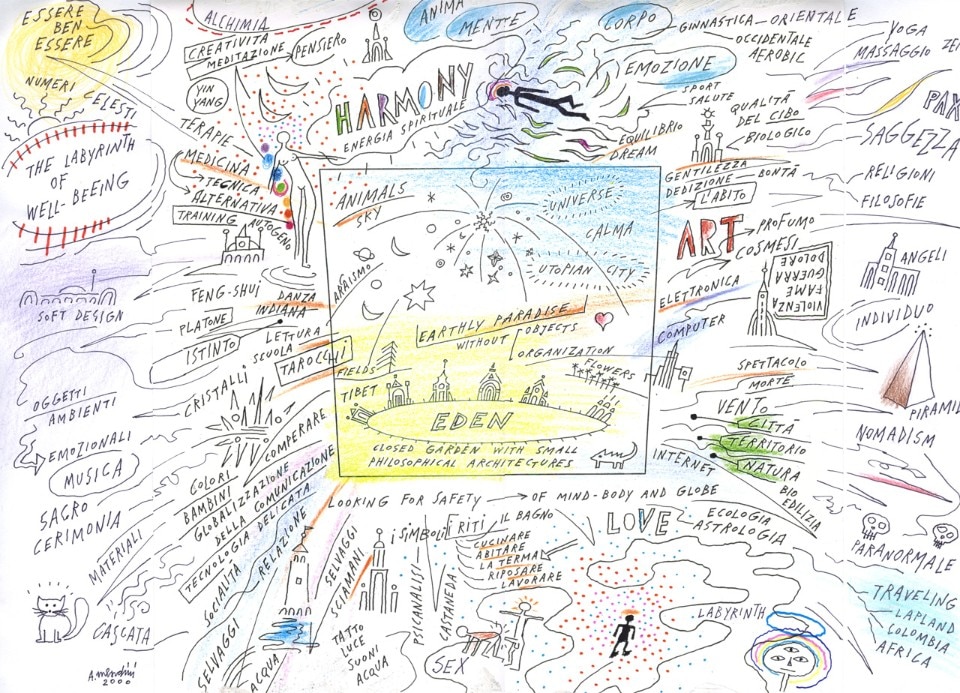 ESSERE
BEN
ESSERE
NUMERI
ELESTI
THE LABYRINTH
OF
WELL-BEEING
SOFT DESIGN
OGGETTI
AMBIENTI
EMOZIONALI
MUSICA
SACRO
CERIMONIA
MATERIALI
CASCATA
A. Mendini
2000
ALCHIMIA
CREATIVITÀ
MEDITAZIONE
PENSIERO
YIN
YANG
TERAPIE
MEDICINA
TECNICA
ALTERNATIVA
TRAINING AUTOGENO
FENG-SHUI
DANZA
INDIANA
PLATONE
ISTINTO
LETTURA
SCUOLA
TAROCCHI
CRISTALLI
COMPERARE
COLORI
BAMBINI
GLOBALIZZAZIONE
DELLA COMUNICAZIONE
TECNOLOGIA DELICATA
SOCIALITÀ
RELAZIONE
SELVAGGI
ACQUA
ANIMA
MENTE
HARMONY
ENERGIA SPIRITUALE
CORPO
GINNASTICA ORIENTALE
OCCIDENTALE
AEROBIC
EMOZIONE
SPORT
SALUTE
EQUILIBRIO
DREAM
YOGA
MASSAGGIO
ZEN
QUALITÀ
DEL CIBO
BIOLOGICO
PAX
SAGGEZZA
GENTILEZZA
DEDIZIONE
BONTÀ
L'ABITO
RELIGIONI
FILOSOFIE
ART
PROFUMO
COSMESI
VIOLENZA
FAME
GUERRA
DOLORE
ANGELI
INDIVIDUO
ELETTRONICA
COMPUTER
SPETTACOLO
MORTE
VENTO
CITTÀ
TERRITORIO
NATURA
BIO
EDILIZIA
INTERNET
PIRAMID
NOMADISM
PARANORMALE
TRAVELING
LAPLAND
COLOMBIA
AFRICA
ANIMALS
SKY
UNIVERSE
CALMA
UTOPIAN CITY
EARTHLY PARADISE
WITHOUT
OBJECTS
ORGANIZATION
FIELDS
FLOWERS
TIBET
EDEN
CLOSED GARDEN WITH SMALL
PHILOSOPHICAL ARCHITECTURES
LOOKING FOR SAFETY → OF MIND-BODY AND GLOBE
LOVE
ECOLOGIA
ASTROLOGIA
SELVAGGI
SCIAMANI
TATTO
LUCE
SUONI
ACQUA
I SIMBOLI
PSICANALISI
CASTANEDA
RITI
IL BAGNO
CUCINARE
ABITARE
LA TERMA
RIPOSARE
LAVORARE
SEX
LABYRINTH